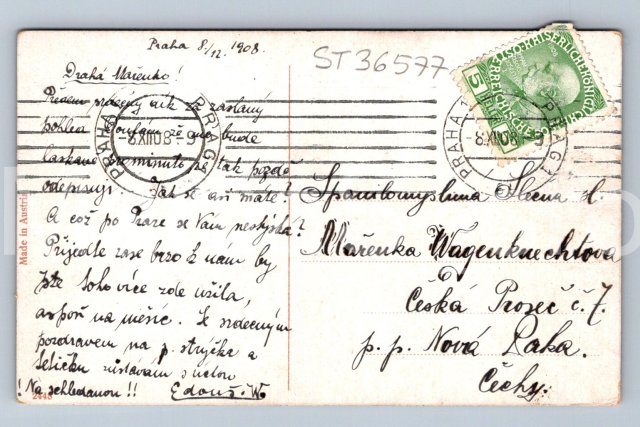 Praha 8./12. 1908.
ST 36577
Drahá Mařenko!
Předem srdečný dík za zaslaný
pohled. Doufám, že mně bude
laskavě prominuto, že tak pozdě
odepisuji. Jak se asi máte?
A což po Praze se Vám nestýská?
Přijeďte zase brzo k nám by
jste toho více zde užila,
aspoň na měsíc. Se srdečným
pozdravem na p. strýčka a
tetičku zůstávám s úctou
! Na schledanou!! Edouš. W.
Made in Austria
2448
PRAHA PRAGA
-8.XII08-9
PRAHA 1 PRAGA 1
-8XII08-9
5
KAISERLICHE KÖNIGL
ÖSTERREICHISCHE
Spanilomyslná Slečna sl.
Mařenka Wagenknechtova
Česká Proseč č. 7.
p. p. Nová Paka.
Čechy.